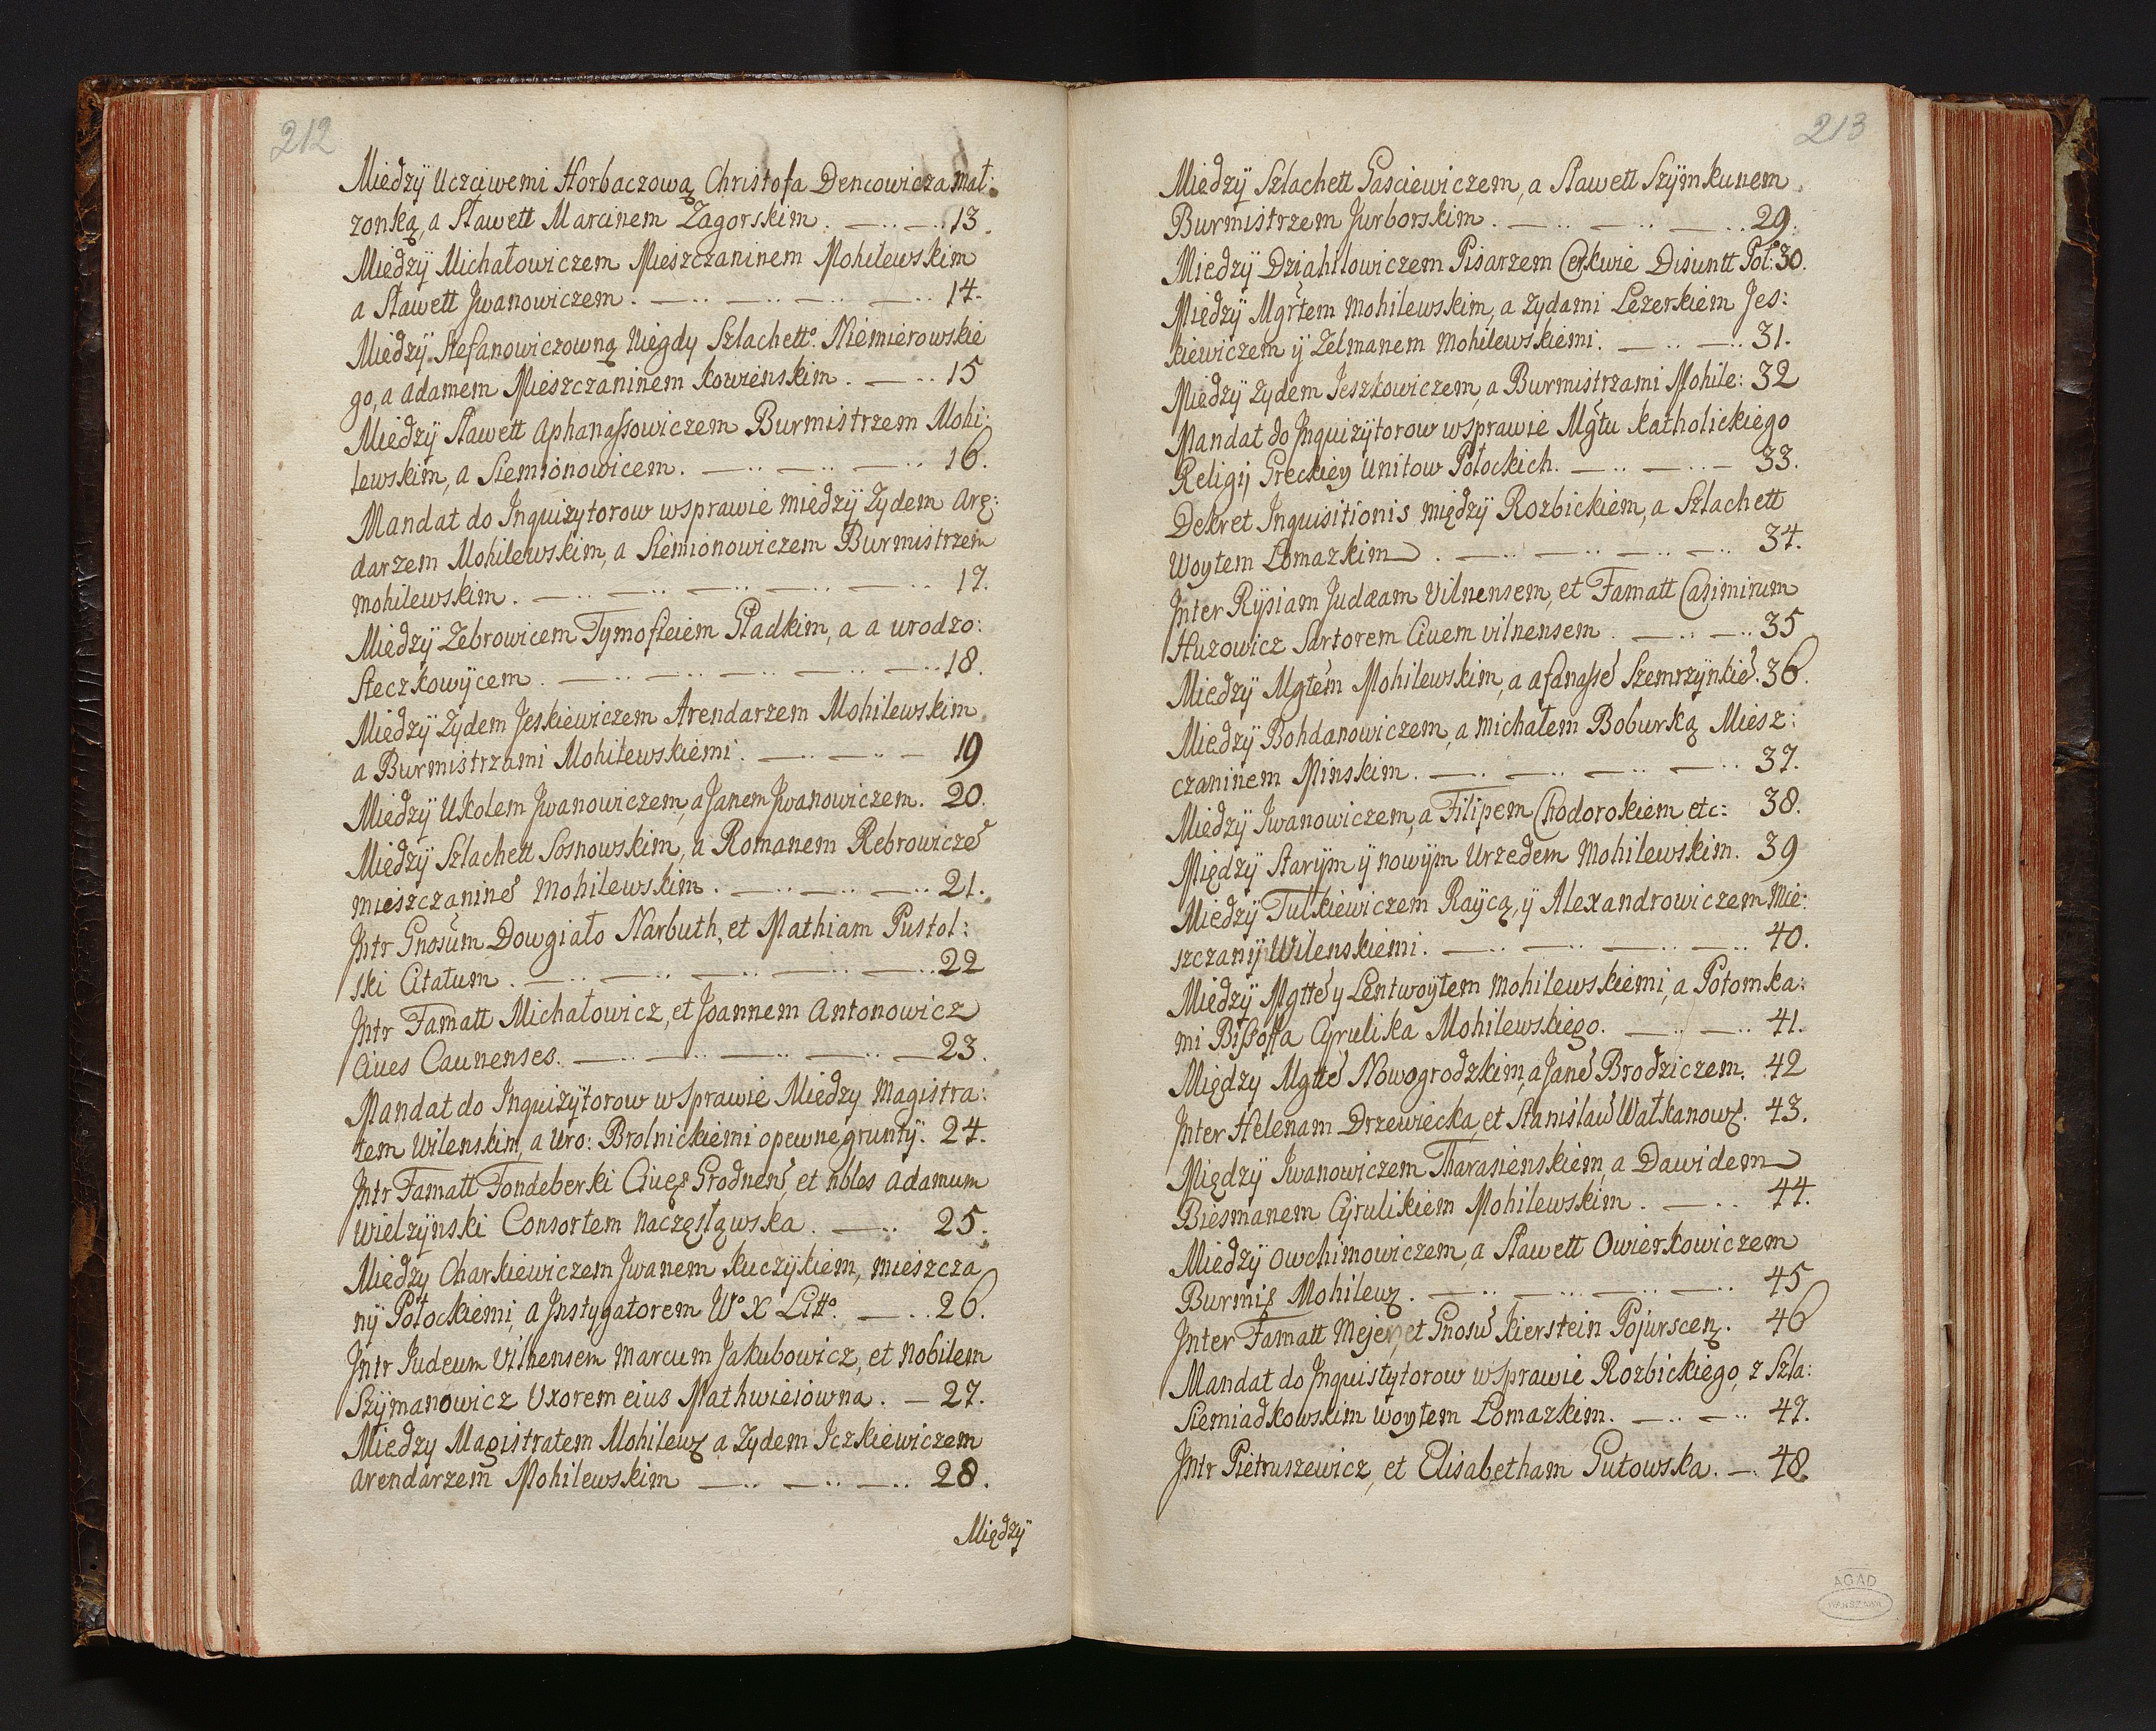 212
Miedzÿ Uczciwemi Horbaczową Christofa Dencowicza mał:
zonką, a Sławett Marcinem Zagorskim. 13.
Miedzÿ Michałowiczem Mieszczaninem Mohilewskim
a Sławett Jwanowiczem. 14.
Miedzÿ Stefanowiczowną niegdy Szlachetto. Niemierowskie
go, a Adamem Mieszczaninem kowienskim. 15
Miedzÿ Sławett Aphanassowiczem Burmistrzem Mohi:
lewskim, a Siemionowicem. 16.
Mandat do Inquizytorow w sprawie miedzÿ Zydem Arę:
darzem Mohilewskim, a Siemionowiczem Burmistrzem
mohilewskim. 17.
Miedzÿ Zebrowicem Tymofieiem Gładkim, a a urodzo:
Steczkowÿcem. 18.
Miedzÿ Zydem Jeskiewiczem Arendarzem Mohilewskim
a Burmistrzami Mohilewskiemi. 19
Miedzÿ Ukolem Jwanowiczem, a Janem Jwanowiczem. 20.
Miedzÿ Szlachett Sosnowskim, a Romanem Rebrowicze
mieszczanine mohilewskim. 21.
Jntr Gnosum Dowgiało Narbuth, et Mathiam Pustol:
ski Citatum. 22
Jntr Famatt Michałowicz, et Joannem Antonowicz
Ciues Caunenses. 23.
Mandat do Inquizÿtorow w sprawie Miedzy Magistra:
tem Wilenskim, a Uro: Brolnickiemi o pewne gruntÿ. 24.
Jntr Famatt Fondeberski Ciueș Grodnens, et nbles Adamum
Wielzÿnski Consortem Naczęstąwska. 25.
Miedzy Charkiewiczem Jwanem kuczÿkiem, mieszcza
nÿ Połockiemi, a Jnstygatorem Wo X Litto. 26.
Jntr Iudeum Vilnensem Marcum Jakubowicz, et Nobilem
Szÿmanowicz Uxorem eius Mathwieiowna. 27.
Miedzy Magistratem Mohilewȝ a Zydem Iczkiewiczem
Arendarzem Mohilewskim 28.
Między
213
Miedzÿ Szlachett Gasciewiczem, a Sławett Szÿmkunem
Burmistrzem Jurborskim. 29.
Miedzÿ Dziahilowiczem Pisarzem Cerkwie Disuntt Poł: 30.
Miedzÿ Mgrtem Mohilewskim, a Zydami Lezerkiem Jes:
kiewiczem ÿ Zelmanem mohilewskiemi. 31.
Miedzÿ Zydem Jeszkowiczem, a Burmistrzami Mohile: 32
Mandat do Jnquizÿtorow w sprawie Mgtu katholickiego
Religij Greckiey Unitow Połockich. 33.
Dekret Inquisitionis między Rozbickiem, a Szlachett
Woytem Łomazkim. 34.
Jnter Rÿsiam Judæam Vilnensem, et Famatt Casimirum
Huzowicz Sartorem Ciuem vilnensem. 35
Miedzÿ Mgtem Mohilewskim, a afanasse Szemrzÿnkie. 36.
Miedzÿ Bohdanowiczem, a michałem Boburką Miesz:
czaninem Minskim. 37.
Miedzÿ Iwanowiczem, a Filipem Chodorokiem etc: 38.
Międzÿ Starÿm ÿ nowÿm Urzedem Mohilewskim. 39
Miedzÿ Tulkiewiczem Raÿcą, ÿ Alexandrowiczem Mie:
szczanÿ Wilenskiemi. 40.
Miedzÿ Mgtte y Lentwoÿtem mohilewskiemi, a Potomka:
mi Bissoffa Cyrulika Mohilewskiego. 41.
Między Mgtte Nowogrodzkim, a Jane Brodziczem. 42
Jnter Helenam Drzewiecka, et Stanisław Wałkanowȝ. 43.
Międzÿ Iwanowiczem Tharasienskiem, a Dawidem
Biesmanem Cÿrulikiem Mohilewskim. 44.
Miedzÿ Owchimowiczem, a Sławett Owierkowiczem
Burmis Mohilewȝ. 45
Jnter Famatt Mejer, et Gnosu kierstein Pojurscenȝ. 46
Mandat do Jnquistÿtorow w sprawie Rozbickiego, z Szla:
Siemiadkowskim Woytem Łomazkim. 47.
Jntr Pietruszewicz, et Elisabetham Gutowska. 48.
AGAD
WARSZAWA